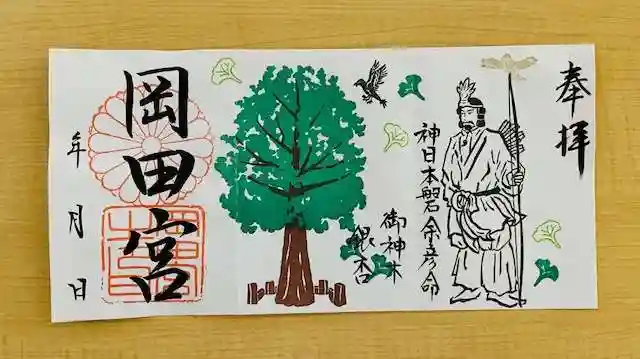 奉拝
神日本磐余彦命
御神木
銀杏
岡田宮
年 月 日